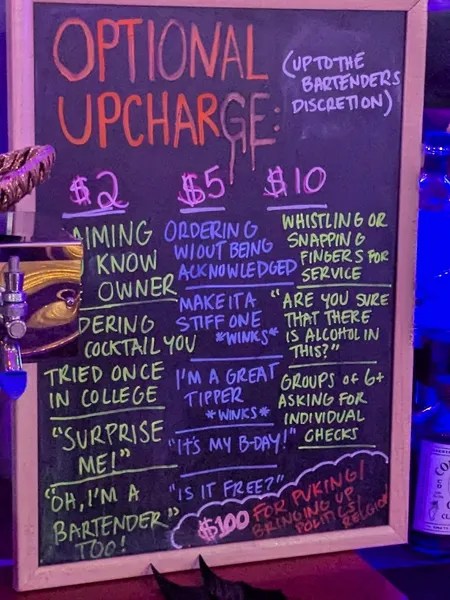 OPTIONAL
UPCHARGE:
(UP TO THE
BARTENDERS
DISCRETION)
$2
AIMING
KNOW
OWNER
DERING
COCKTAIL YOU
TRIED ONCE
IN COLLEGE
"SURPRISE
ME!"
"OH, I'M A
BARTENDER"
TOO!
$5
ORDERING
W/OUT BEING
ACKNOWLEDGED
MAKE IT A
STIFF ONE
*WINKS*
I'M A GREAT
TIPPER
*WINKS*
"IT'S MY B-DAY!"
"IS IT FREE?"
$10
WHISTLING OR
SNAPPING
FINGERS FOR
SERVICE
"ARE YOU SURE
THAT THERE
IS ALCOHOL IN
THIS?"
GROUPS OF 6+
ASKING FOR
INDIVIDUAL
CHECKS
$100 FOR PUKING/
BRINGING UP
POLITICS/
RELIGION